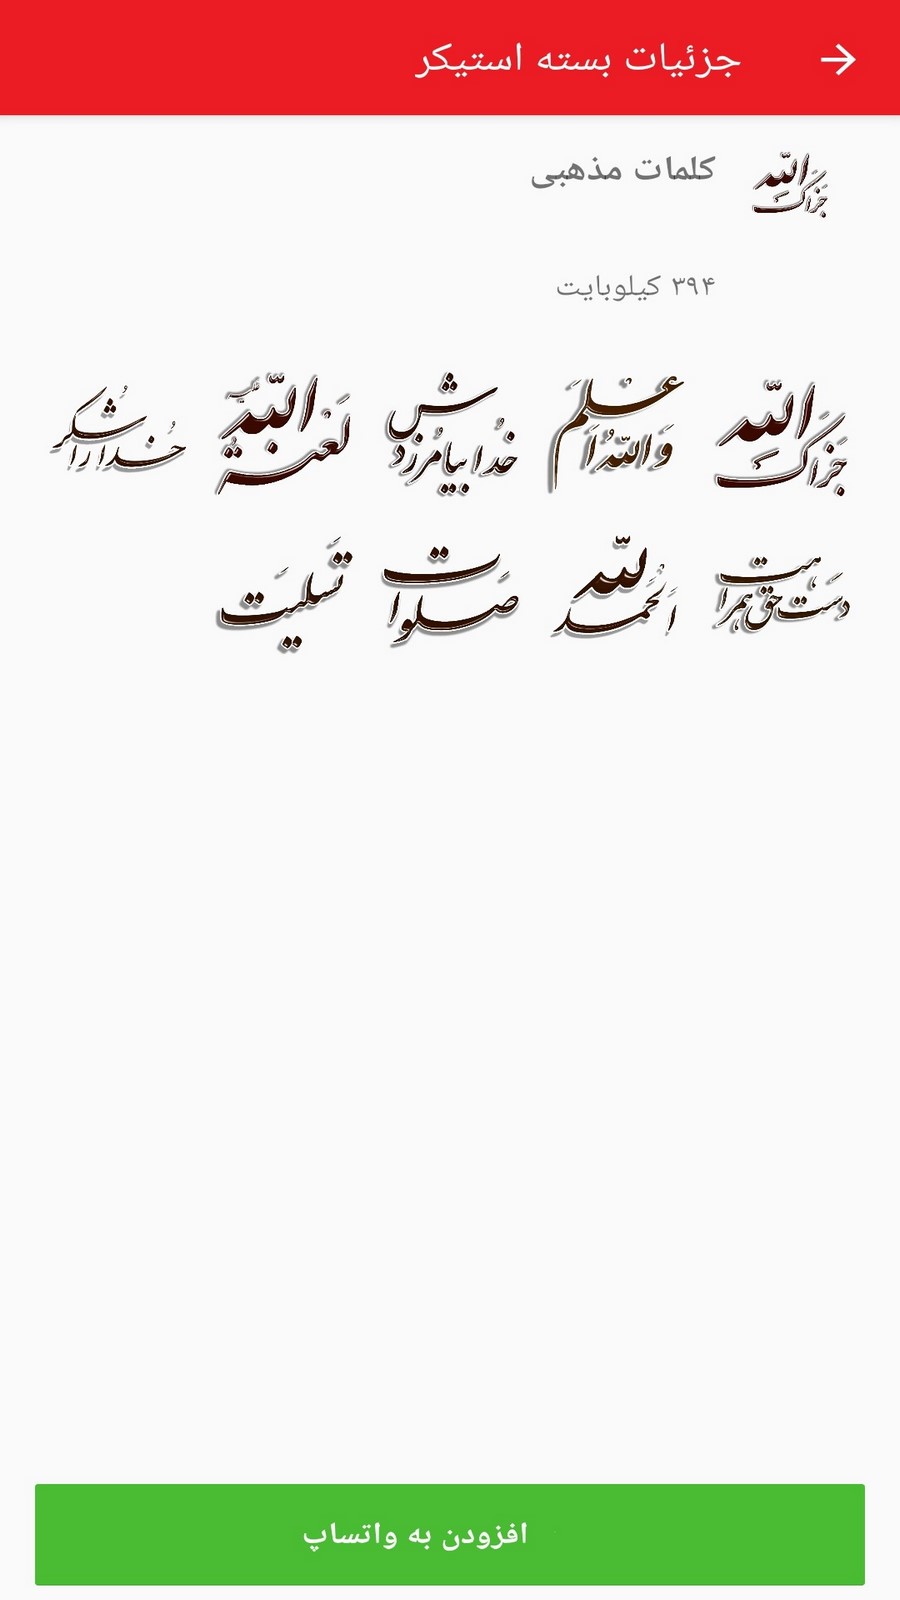 جزئیات بسته استیکر
جَزاکَ اللّه
کلمات مذهبی
۳۹۴ کیلوبایت
جَزاکَ اللّه
وَاللّهُ اَعلَم
خدا بیامُرزدش
لَعنةُ اللّه علیه
خُدا را شُکر
دَست حَق همراهت
اَلحَمدُ للّه
صَلوات
تَسلیَت
افزودن به واتساپ